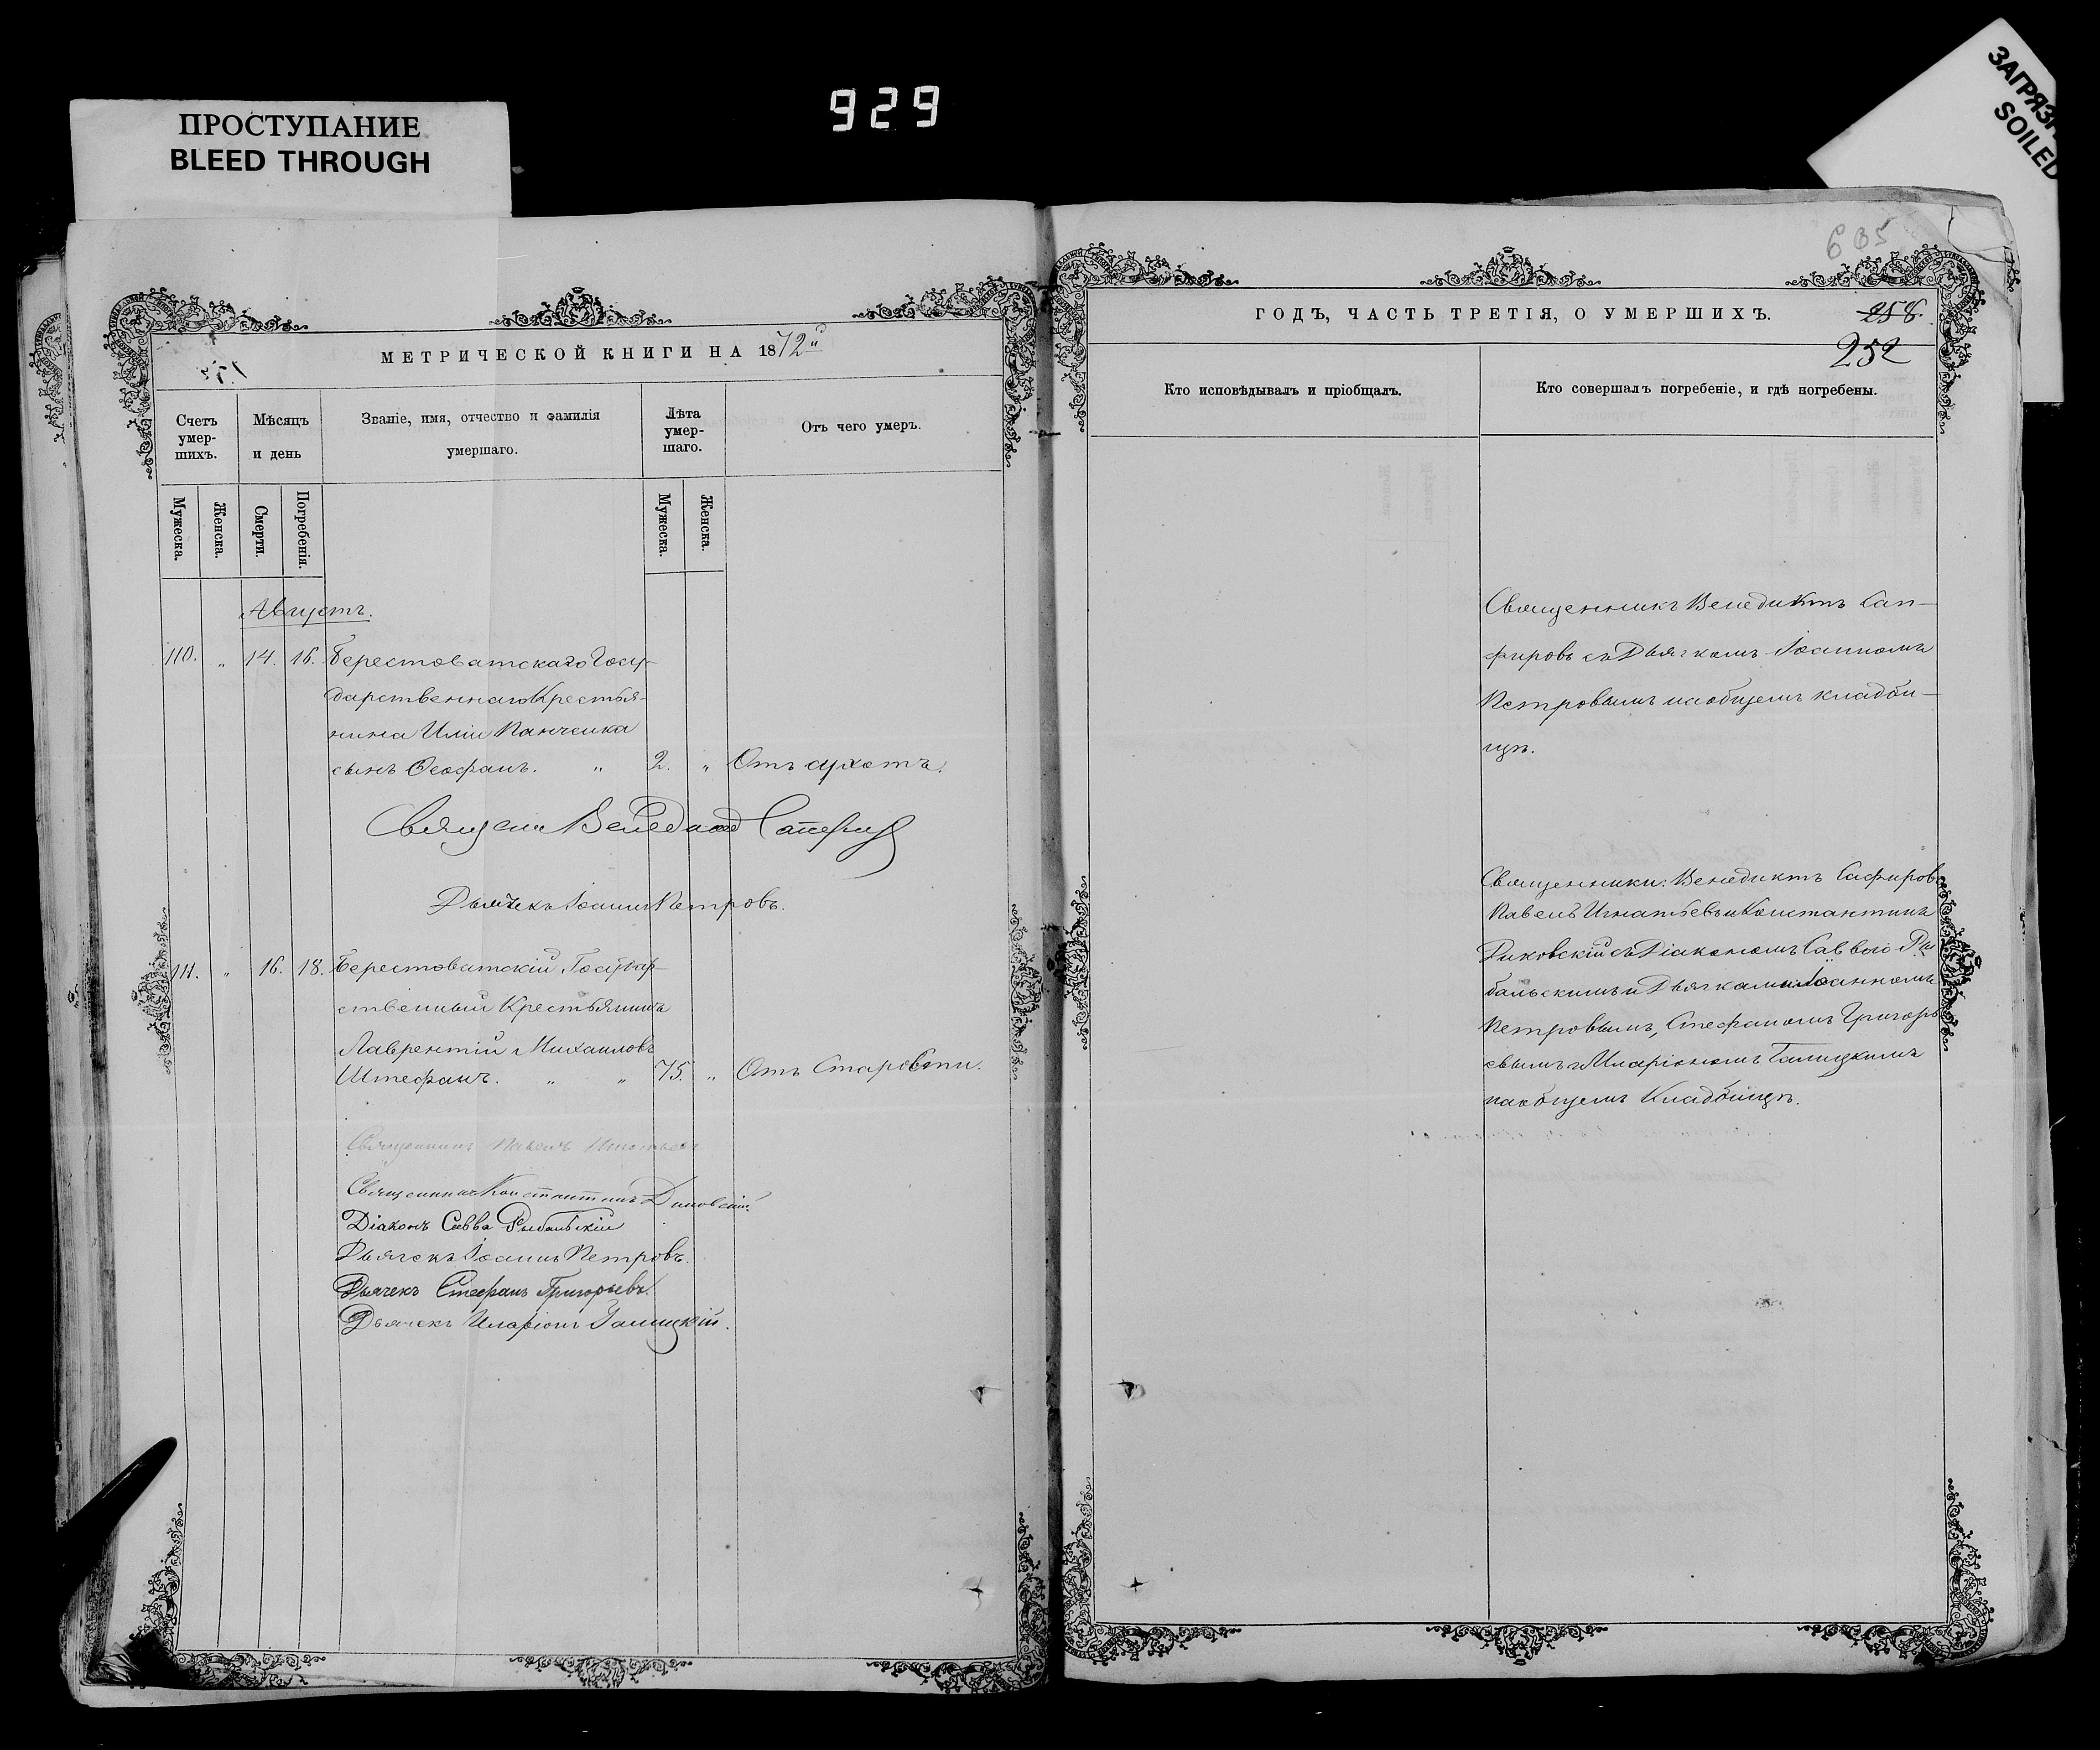 929
ПРОСТУПАНИЕ
BLEED THROUGH
ЗАГРЯЗН
SOILED
МЕТРИЧЕСКОЙ КНИГИ НА 1872й
Счетъ умер-шихъ.
Мѣсяцъ и день
Званіе, имя, отчество и фамилія
умершаго.
Лѣта умер-шаго.
Отъ чего умеръ.
Мужеска.
Женска.
Смерти.
Погребенія.
Мужеска.
Женска.
Августъ.
110. „ 14. 16. Берестоватскаго Госу-
дарственнаго Крестья-
нина Иліи Панченка
сынъ Ѳеофанъ. „ 2. „ Отъ сухотъ.
Священ Венедикт
Дьячекъ Іоаннъ Петровъ.
111. „ 16. 18. Берестоватскій Государ-
ственный Крестьянинъ
Лаврентій Михаиловъ
Штефанъ. „ „ 75. „ Отъ Старости.
Священникъ Павелъ Игнатьевъ
Священникъ Константинъ Диковскій
Діаконъ Савва Рыбальскій
Дьячекъ Іоаннъ Петровъ.
Дьячекъ Стефанъ Григорьевъ.
Дьячекъ Иларіонъ Галицкій.
605
ГОДЪ, ЧАСТЬ ТРЕТІЯ, О УМЕРШИХЪ.
258
252
Кто исповѣдывалъ и пріобщалъ.
Кто совершалъ погребеніе, и гдѣ погребены.
Священникъ Венедиктъ Сап-
фировъ съ Дьячкомъ Іоанномъ
Петровымъ на общемъ кладби-
щѣ.
Священники: Венедиктъ Сафировъ
Павелъ Игнатьевъ и Константинъ
Диковскій съ Діакономъ Саввою Ры
бальскимъ и Дьячками Іоанномъ
Петровымъ, Стефаномъ Григорь
евымъ и Иларіономъ Галицкимъ
на общемъ Кладбищѣ.